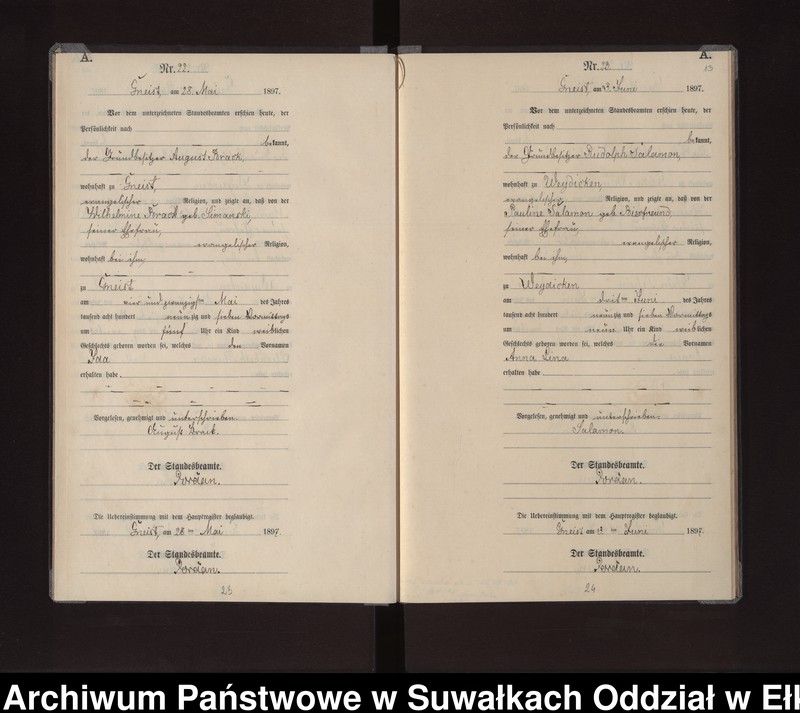 A.
Nr. 22.
Gneist, am 28. Mai 1897.
Vor dem unterzeichneten Standesbeamten erschien heute, der
Persönlichkeit nach
bekannt,
der Grundbesitzer August Brack,
wohnhaft zu Gneist,
evangelischer Religion, und zeigte an, daß von der
Wilhelmine Brack geb. Simanski,
seiner Ehefrau,
evangelischer Religion,
wohnhaft bei ihm,
zu Gneist
am vier und zwanzigsten Mai des Jahres
tausend acht hundert neunzig und sieben Vormittags
um fünf Uhr ein Kind weiblichen
Geschlechts geboren worden sei, welches den Vornamen
Ida
erhalten habe.
Vorgelesen, genehmigt und unterschrieben
August Brack.
Der Standesbeamte.
Die Uebereinstimmung mit dem Hauptregister beglaubigt.
Gneist, am 28ten Mai 1897.
Der Standesbeamte.
23
A.
Nr. 23.
Gneist, am Juni 1897.
Vor dem unterzeichneten Standesbeamten erschien heute, der
Persönlichkeit nach
bekannt,
der Grundbesitzer Rudolph Salamon,
wohnhaft zu Weydicken,
evangelischer Religion, und zeigte an, daß von der
Pauline Salamon geb. Bierfreund,
seiner Ehefrau,
evangelischer Religion,
wohnhaft bei ihm,
zu Weydicken
am dritten Juni des Jahres
tausend acht hundert neunzig und sieben Vormittags
um neun Uhr ein Kind weiblichen
Geschlechts geboren worden sei, welches die Vornamen
Anna Lina
erhalten habe.
Vorgelesen, genehmigt und unterschrieben.
Salamon.
Der Standesbeamte.
Die Uebereinstimmung mit dem Hauptregister beglaubigt.
Gneist am ten Juni 1897.
Der Standesbeamte.
24
Archiwum Państwowe w Suwałkach Oddział w Ełk